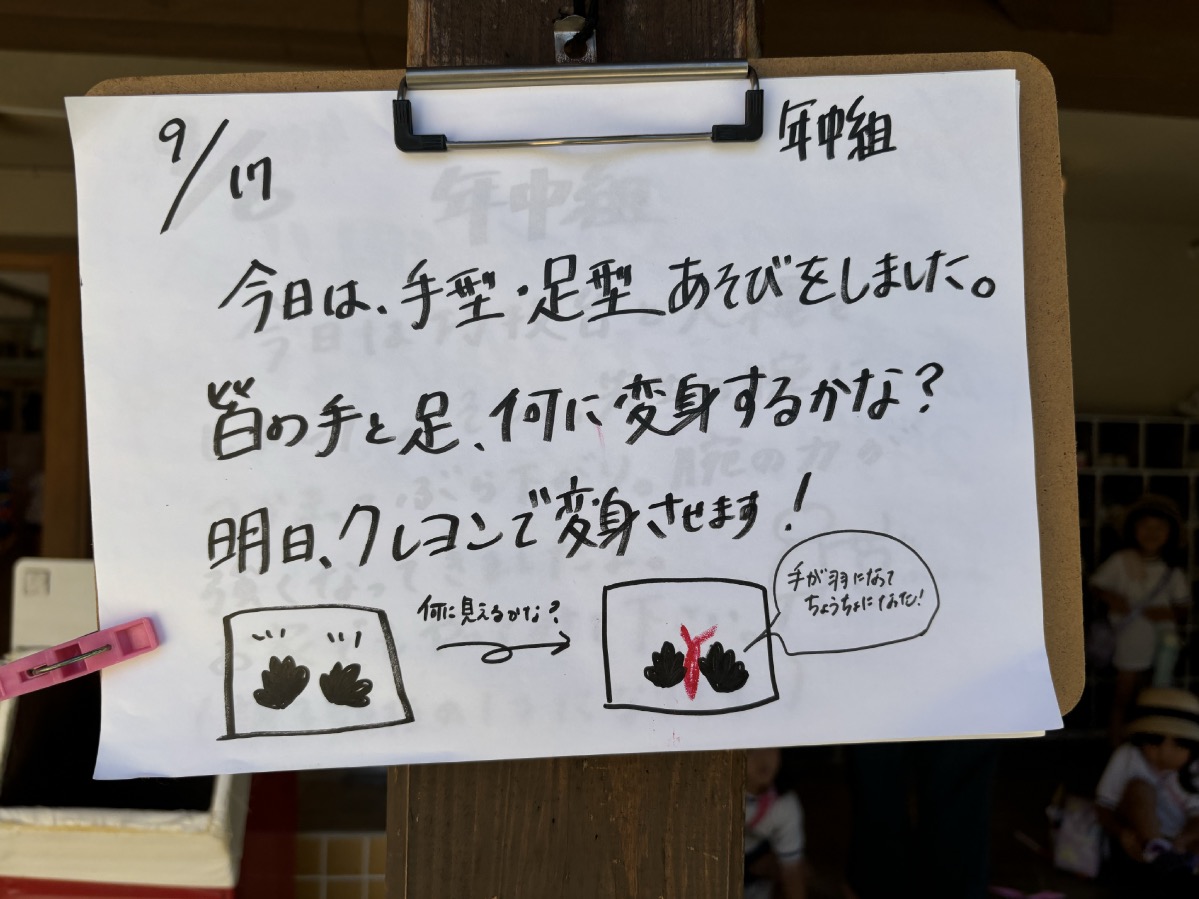 9/17
年中組
今日は、手型・足型あそびをしました。
皆の手と足、何に変身するかな？
明日、クレヨンで変身させます！
何に見えるかな？
手が羽になって
ちょうちょになった！